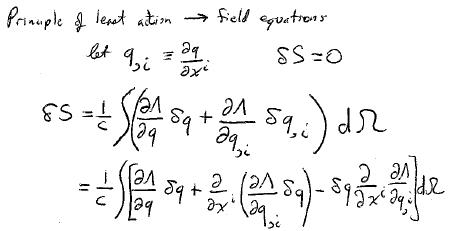 Principle of least action → field equations
let q,i ≡ ∂q/∂xⁱ δS=0
δS = 1/c ∫(∂Λ/∂q δq + ∂Λ/∂q,i δq,i) dΩ
= 1/c ∫[∂Λ/∂q δq + ∂/∂xⁱ (∂Λ/∂q,i δq) − δq ∂/∂xⁱ ∂Λ/∂q,i] dΩ